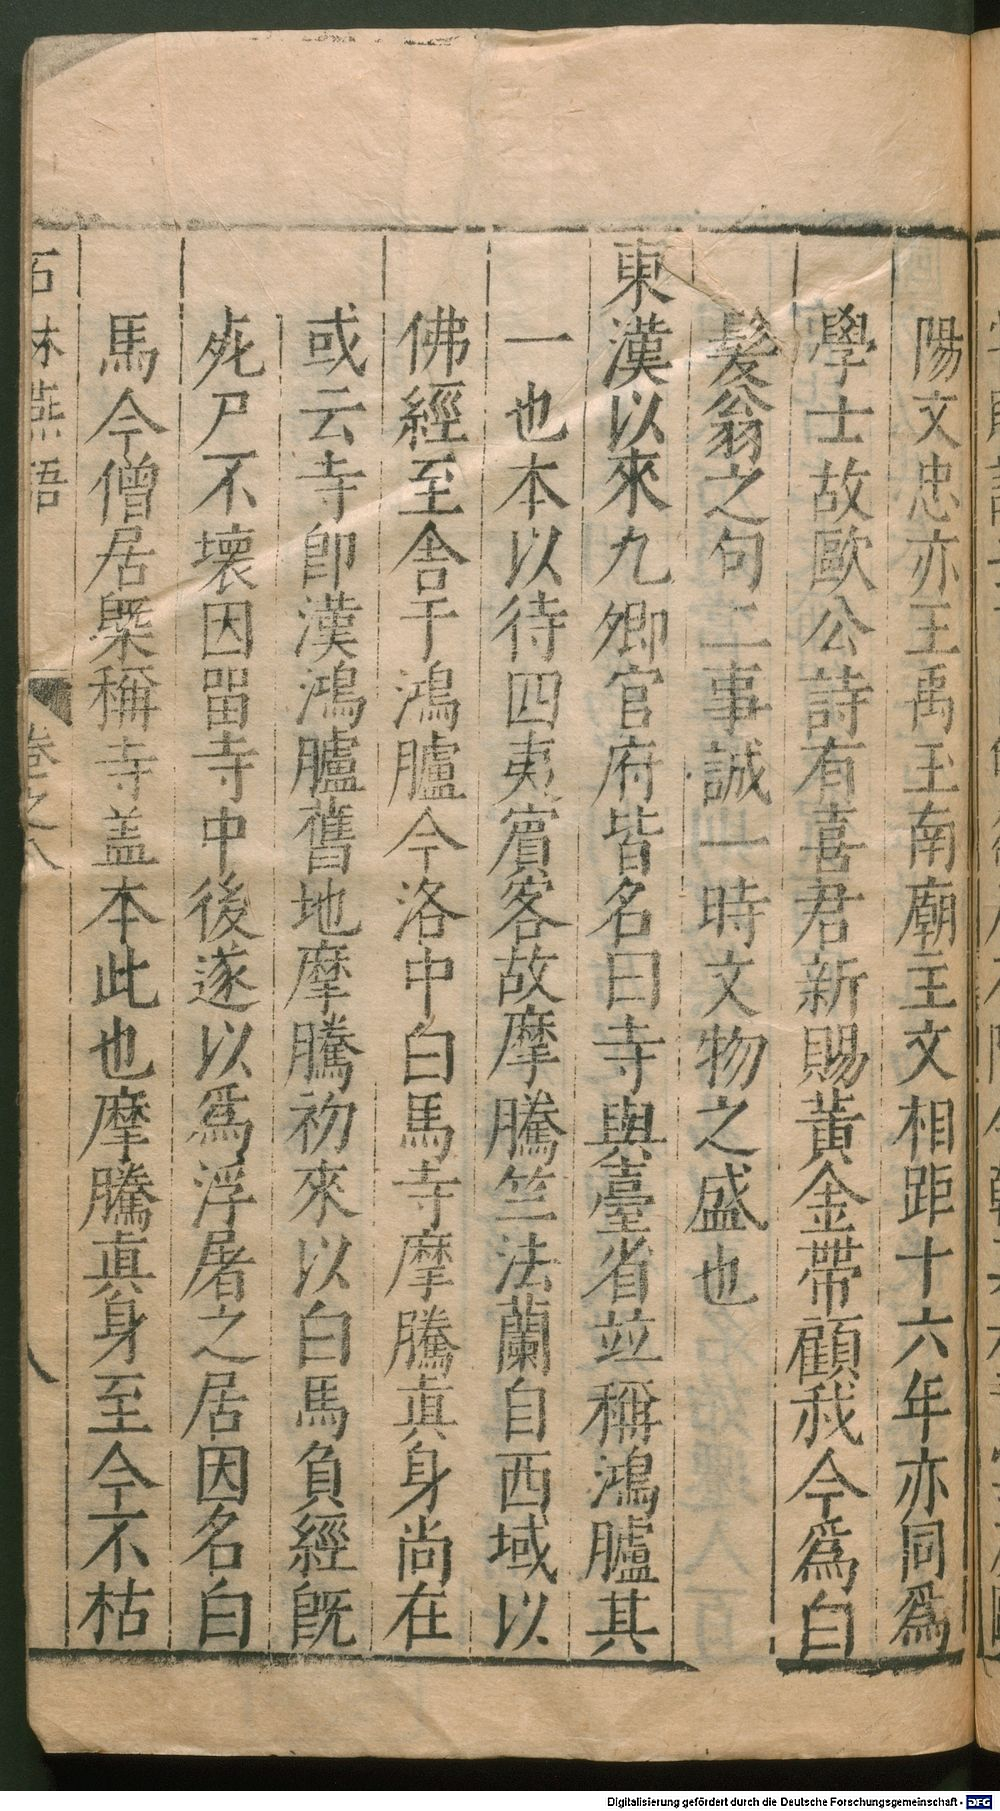 陽文忠亦王禹玉南廟主文相距十六年亦同爲
學士故歐公詩有喜君新賜黃金帶顧我今爲白
髮翁之句二事誠一時文物之盛也
東漢以來九卿官府皆名曰寺與臺省並稱鴻臚其
一也本以待四夷賓客故摩騰竺法蘭自西域以
佛經至舍于鴻臚今洛中白馬寺摩騰真身尚在
或云寺卽漢鴻臚舊地摩騰初來以白馬負經旣
死尸不壞因畱寺中後遂以爲浮屠之居因名白
馬今僧居槩稱寺盖本此也摩騰真身至今不枯
石林燕語 卷之八 八
Digitalisierung gefördert durch die Deutsche Forschungsgemeinschaft - DFG